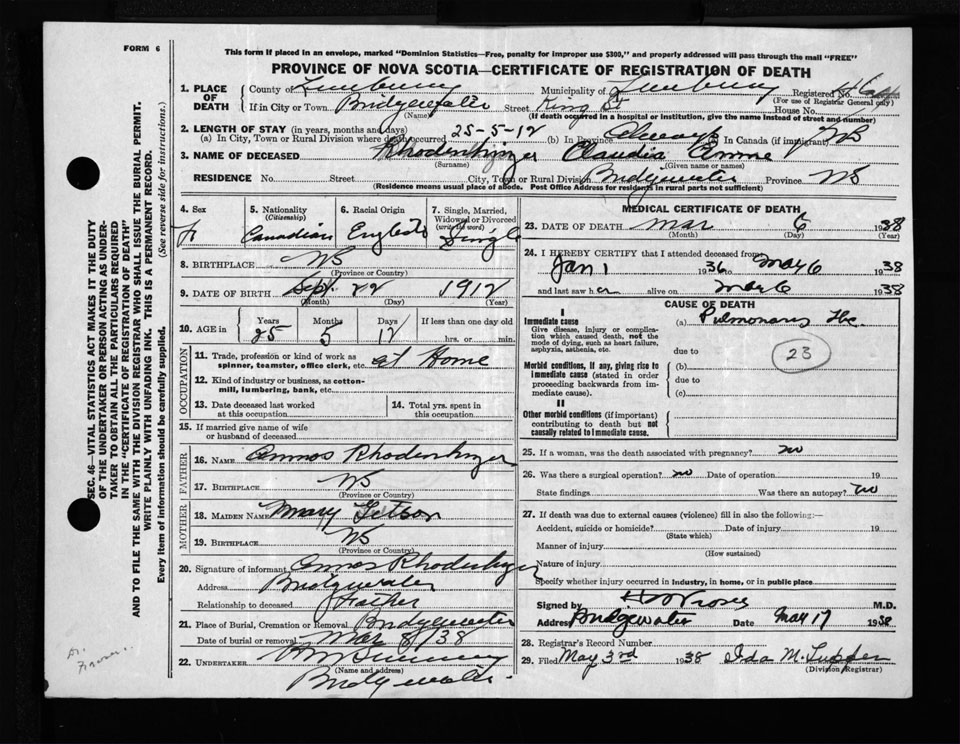 FORM 6
This form if placed in an envelope, marked "Dominion Statistics—Free, penalty for improper use $300," and properly addressed will pass through the mail "FREE"
PROVINCE OF NOVA SCOTIA—CERTIFICATE OF REGISTRATION OF DEATH
1. PLACE OF DEATH County of Lunenburg Municipality of Lunenburg Registered No.
(For use of Registrar General only)
If in City or Town Bridgewater Street King St House No.
(Name) (If death occurred in a hospital or institution, give the name instead of street and number)
2. LENGTH OF STAY (in years, months and days)
(a) In City, Town or Rural Division where death occurred 25-5-12 (b) In Province Always In Canada (if immigrant)
3. NAME OF DECEASED Rhodenhizer Claudia
(Surname) (Given name or names)
RESIDENCE No. Street City, Town or Rural Division Bridgewater Province NS
(Residence means usual place of abode. Post Office Address for residents in rural parts not sufficient)
4. Sex F
5. Nationality (Citizenship) Canadian
6. Racial Origin English
7. Single, Married, Widowed or Divorced (write the word) Single
8. BIRTHPLACE NS
(Province or Country)
9. DATE OF BIRTH Sept. 22 1912
(Month) (Day) (Year)
10. AGE in Years Months Days If less than one day old
25 5 12 hrs. or min.
OCCUPATION
11. Trade, profession or kind of work as spinner, teamster, office clerk, etc. at Home
12. Kind of industry or business, as cotton-mill, lumbering, bank, etc.
13. Date deceased last worked at this occupation
14. Total yrs. spent in this occupation
15. If married give name of wife or husband of deceased
FATHER
16. NAME Amos Rhodenhizer
17. BIRTHPLACE NS
(Province or Country)
MOTHER
18. MAIDEN NAME Mary Getson
19. BIRTHPLACE NS
(Province or Country)
20. Signature of informant Amos Rhodenhizer
Address Bridgewater
Relationship to deceased Father
21. Place of Burial, Cremation or Removal Bridgewater
Date of burial or removal Mar 8/38
22. UNDERTAKER
(Name and address)
Bridgewater
MEDICAL CERTIFICATE OF DEATH
23. DATE OF DEATH Mar 6 1938
(Month) (Day) (Year)
24. I HEREBY CERTIFY that I attended deceased from
Jan 1 1936 to Mar 6 1938
and last saw her alive on Mar 6 1938
CAUSE OF DEATH
I
Immediate cause (a) Pulmonary Tbc.
Give disease, injury or complication which caused death, not the mode of dying, such as heart failure, asphyxia, asthenia, etc.
due to
23
Morbid conditions, if any, giving rise to immediate cause (stated in order proceeding backwards from immediate cause).
(b)
due to
(c)
II
Other morbid conditions (if important) contributing to death but not causally related to immediate cause.
25. If a woman, was the death associated with pregnancy? no
26. Was there a surgical operation? no Date of operation 19
State findings Was there an autopsy? no
27. If death was due to external causes (violence) fill in also the following:—
Accident, suicide or homicide? Date of injury 19
(State which)
Manner of injury
(How sustained)
Nature of injury
Specify whether injury occurred in industry, in home, or in public place
Signed by M.D.
Address Bridgewater Date May 17 1938
28. Registrar's Record Number
29. Filed May 3rd 1938 Ida M. Tupper
(Division Registrar)
SEC. 46—VITAL STATISTICS ACT MAKES IT THE DUTY
OF THE UNDERTAKER OR PERSON ACTING AS UNDER-
TAKER TO OBTAIN ALL THE PARTICULARS REQUIRED
IN THE "CERTIFICATE OF REGISTRATION OF DEATH"
AND TO FILE THE SAME WITH THE DIVISION REGISTRAR WHO SHALL ISSUE THE BURIAL PERMIT.
WRITE PLAINLY WITH UNFADING INK. THIS IS A PERMANENT RECORD.
Every item of information should be carefully supplied. (See reverse side for instructions.)